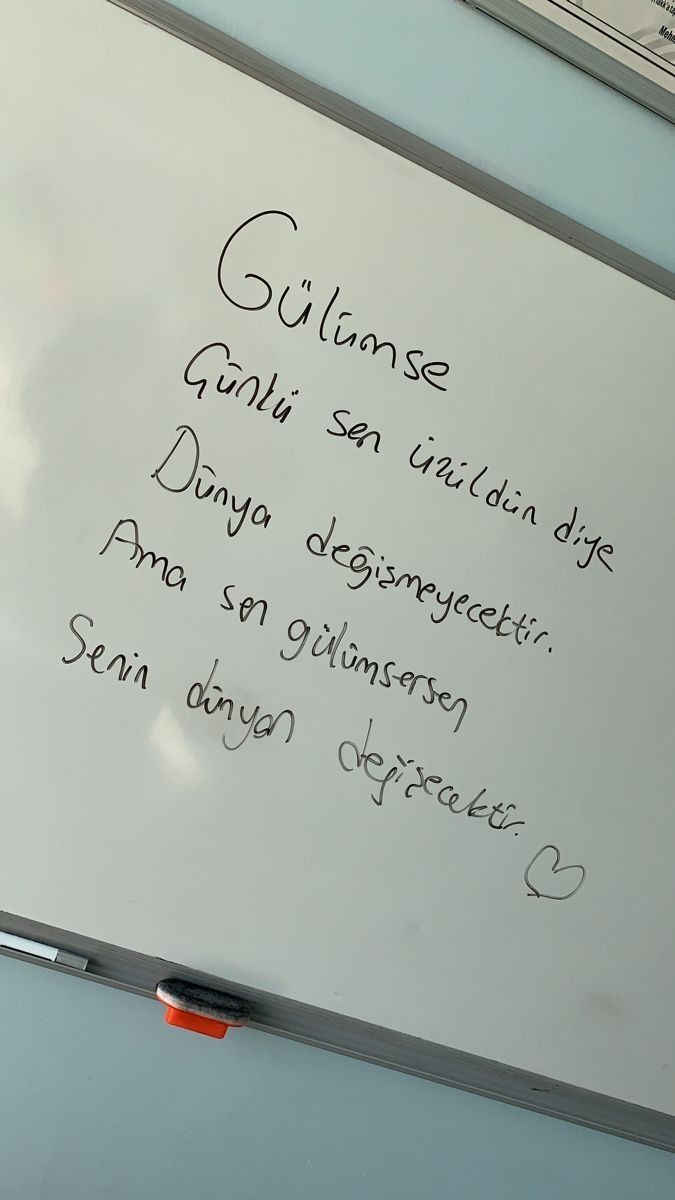 Gülümse
Çünkü sen üzüldün diye
Dünya değişmeyecektir.
Ama sen gülümsersen
Senin dünyan değişecektir.